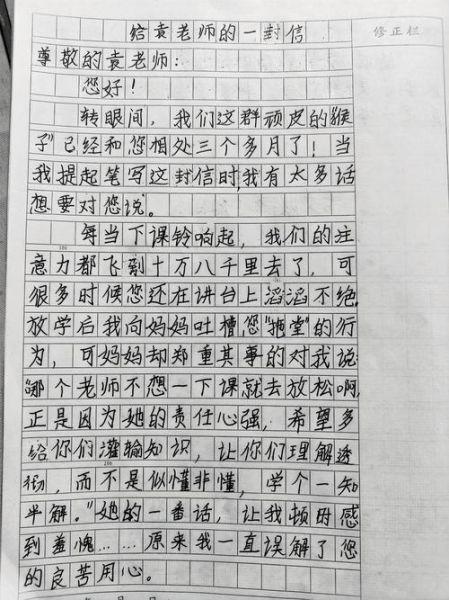 给袁老师的一封信
修正栏
尊敬的袁老师：
您好！
转眼间，我们这群顽皮的“猴
子”已经和您相处三个多月了！当
我提起笔写这封信时，我有太多话
想要对您说。
每当下课铃响起，我们的注
意力都飞到十万八千里去了，可
很多时候您还在讲台上滔滔不绝，
放学后我向妈妈吐槽您“拖堂”的行
为，可妈妈却郑重其事的对我说
“哪个老师不想一下课就去放松啊，
正是因为她的责任心强，希望多
给你们灌输知识，让你们理解透
彻，而不是似懂非懂，学个一知
半解。”她的一番话，让我顿时感
到羞愧……原来我一直误解了您
的良苦用心。